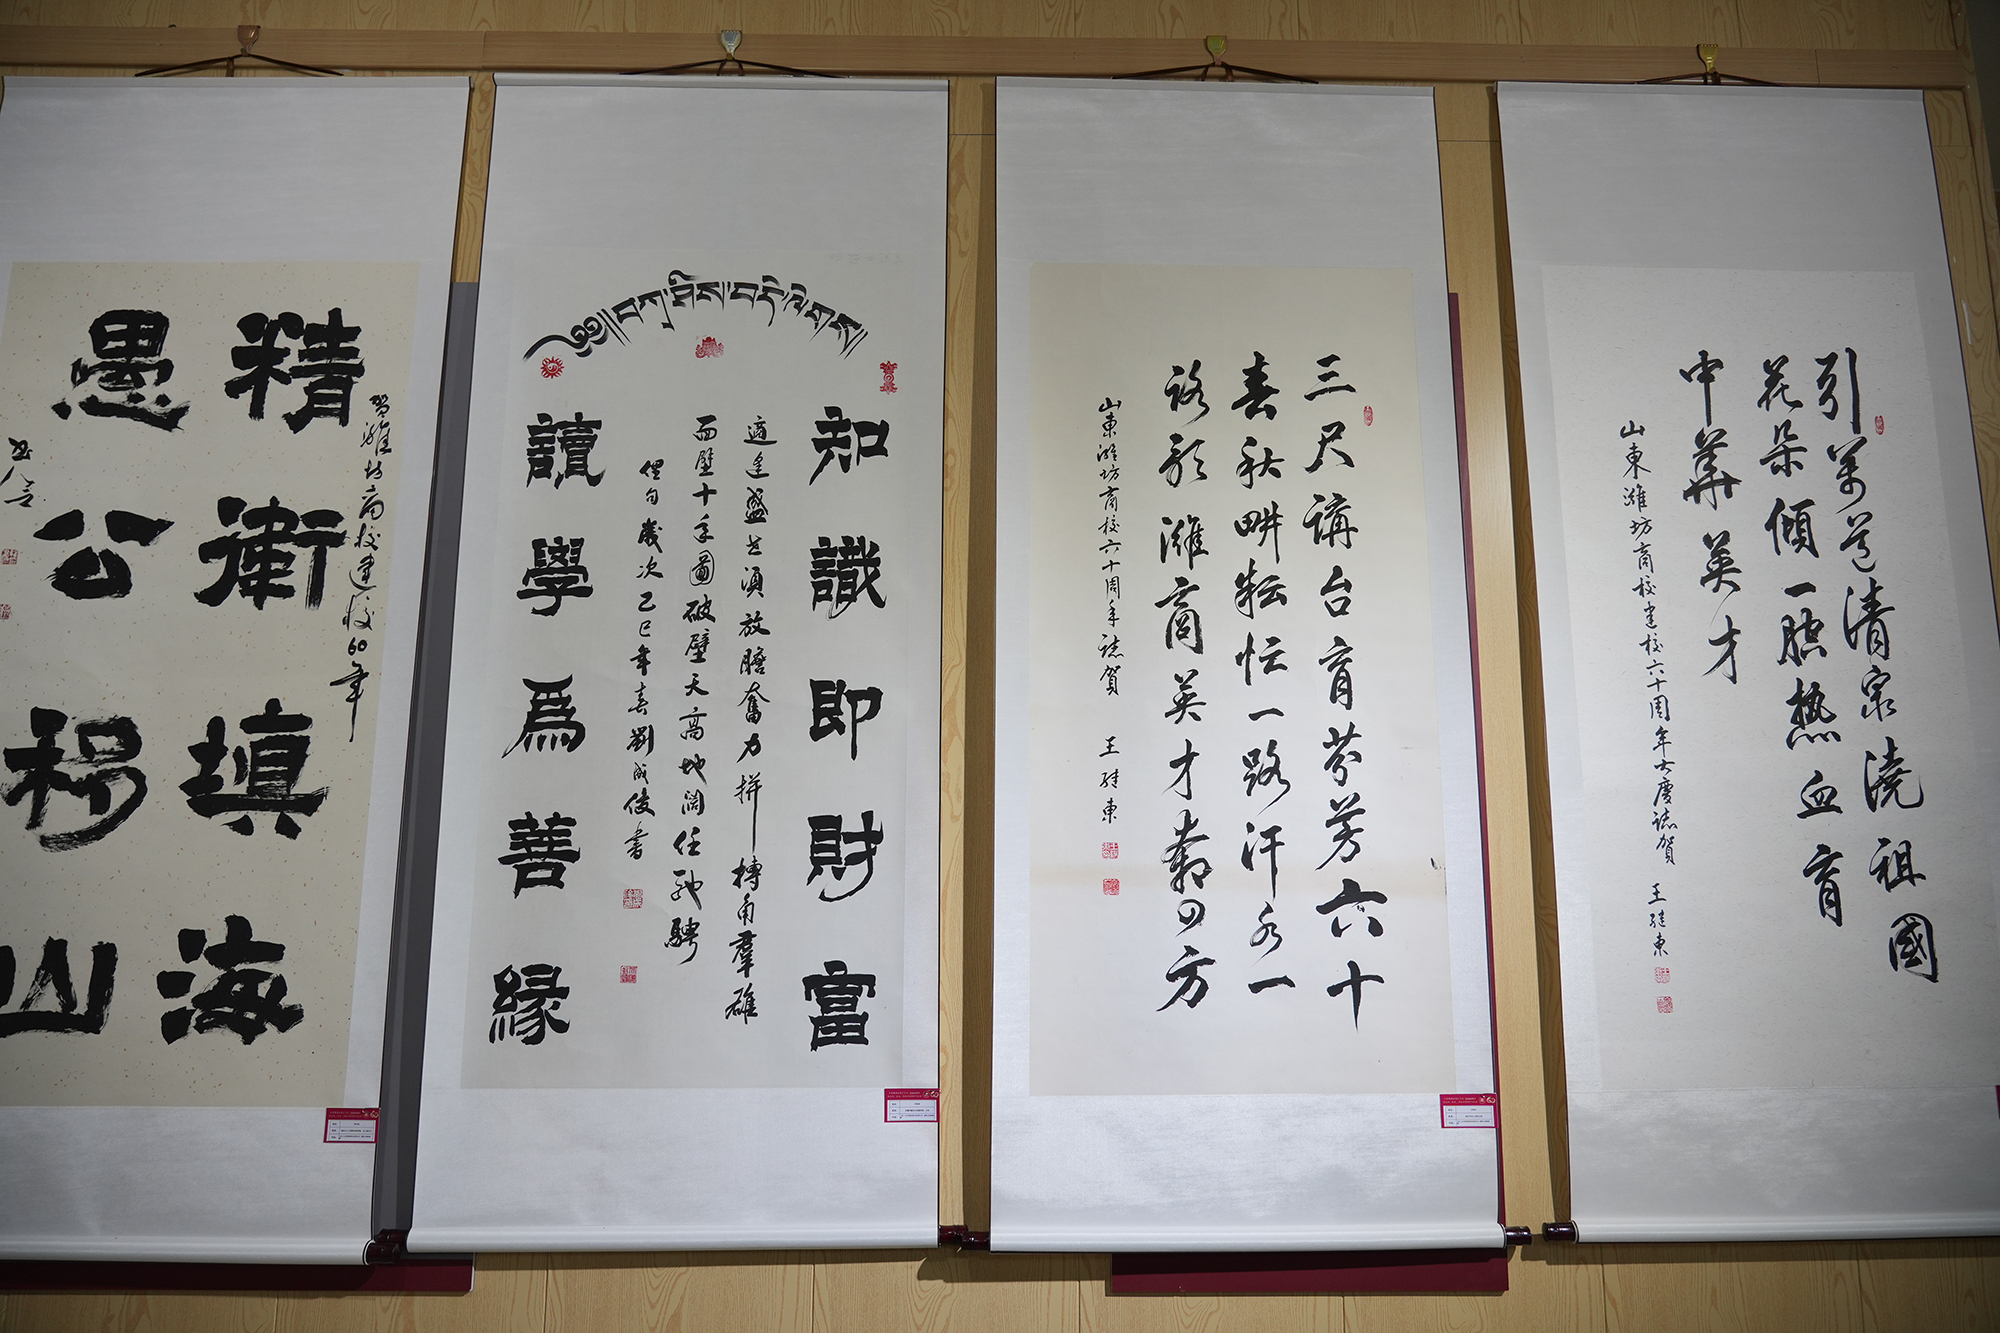 賀濰坊商校建校60年
精衛填海
愚公移山
༄༅།།བཀྲ་ཤིས་བདེ་ལེགས།།
知識即財富
適逢盛世須放膽奮力拼搏角羣雄
面壁十年圖破壁天高地闊任馳騁
俚句歲次乙巳年春劉成俊書
讀學爲善緣
三尺講台育芬芳六十
春秋耕耘忙一路汗水一
路歌濰商英才四方
山東濰坊商校六十周年誌賀 王継東
引萬道清泉澆祖國
花朵傾一腔熱血育
中華英才
山東濰坊商校建校六十周年大慶誌賀 王継東